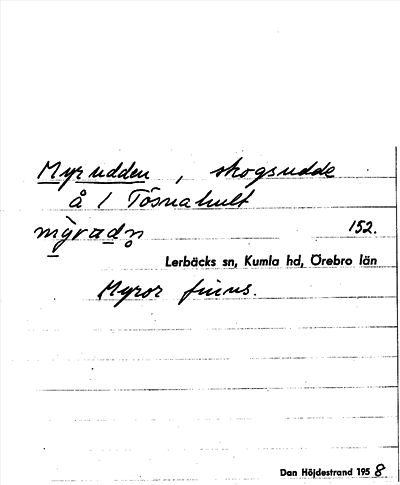 Myrudden, skogsudde
å 1 Tösnahult
152.
Lerbäcks sn, Kumla hd, Örebro län
Myror finns.
Dan Höjdestrand 1958